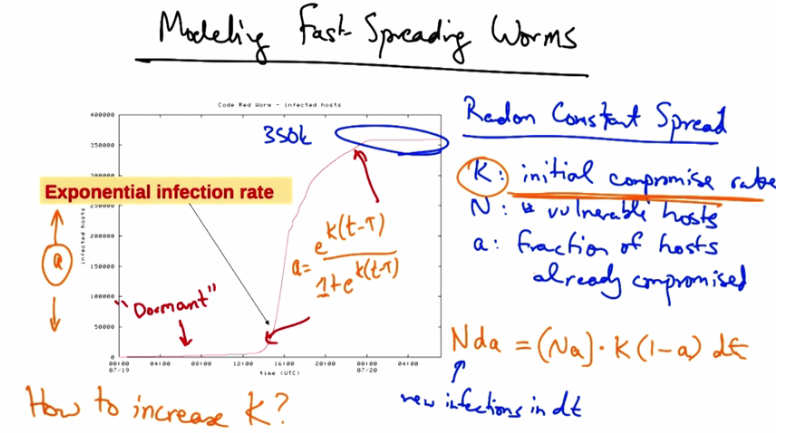 Modeling Fast Spreading Worms
Code Red Worm - infected hosts
400000
350000
300000
250000
200000
150000
100000
50000
0
infected hosts
00:00
07/19
04:00
08:00
12:00
16:00
20:00
00:00
07/20
04:00
time (UTC)
350k
Exponential infection rate
a
"Dormant"
a = e^k(t-T) / 1+e^k(t-T)
Radon Constant Spread
K: initial compromise rate
N: # vulnerable hosts
a: fraction of hosts
already compromised
Nda = (Na) · K (1-a) dt
new infections in dt
How to increase K?